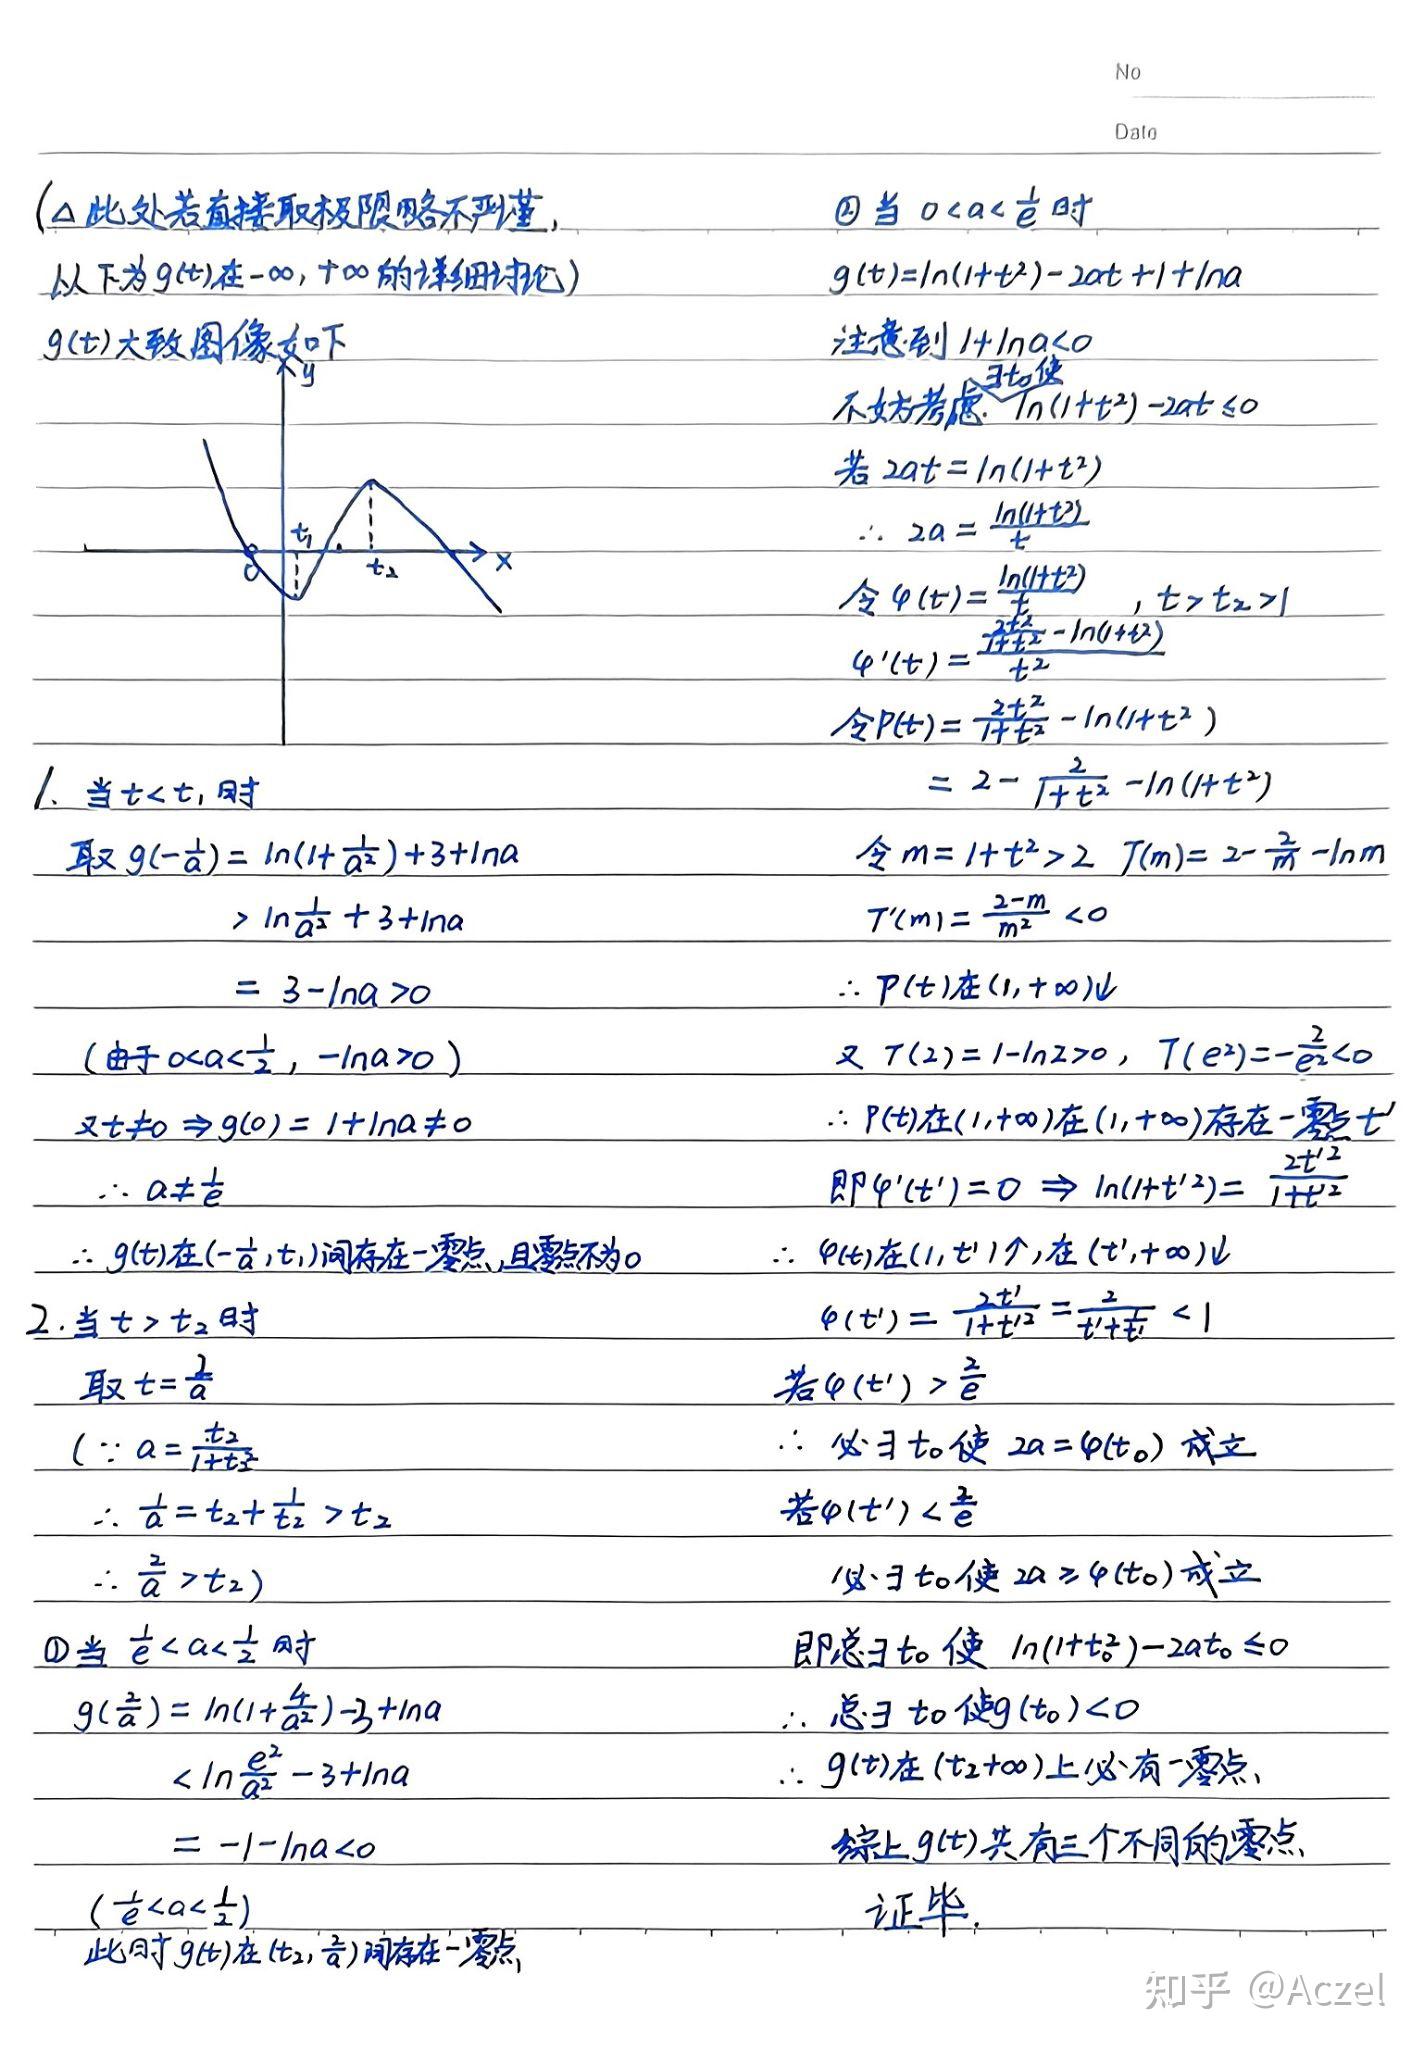 No
Date
(△此处若直接取极限略不严谨,
以下为g(t)在-∞,+∞的详细讨论)
g(t)大致图像如下
y
t₁
t₂
x
0
1. 当t<t₁时
取g(-1/a)=ln(1+1/a²)+3+lna
>ln1/a²+3+lna
=3-lna>0
(由于0<a<1/2, -lna>0)
又t≠0⇒g(0)=1+lna≠0
∴a≠1/e
∴g(t)在(-1/a,t₁)间存在一零点,且零点不为0
2.当t>t₂时
取t=2/a
(∵a=t₂/(1+t₂²)
∴1/a=t₂+1/t₂>t₂
∴2/a>t₂)
①当1/e<a<1/2时
g(2/a)=ln(1+4/a²)-3+lna
<ln e²/a²-3+lna
=-1-lna<0
(1/e<a<1/2)
此时g(t)在(t₂,2/a)间存在一零点
②当0<a<1/e时
g(t)=ln(1+t²)-2at+1+lna
注意到1+lna<0
不妨考虑∃t₀使ln(1+t²)-2at≤0
若2at=ln(1+t²)
∴2a=ln(1+t²)/t
令φ(t)=ln(1+t²)/t, t>t₂>1
φ'(t)=(2t²/(1+t²)-ln(1+t²))/t²
令P(t)=2t²/(1+t²)-ln(1+t²)
=2-2/(1+t²)-ln(1+t²)
令m=1+t²>2 T(m)=2-2/m-lnm
T'(m)=(2-m)/m²<0
∴P(t)在(1,+∞)↓
又T(2)=1-ln2>0, T(e²)=-2/e²<0
∴P(t)在(1,+∞)在(1,+∞)存在一零点t'
即φ'(t')=0⇒ln(1+t'²)=2t'²/(1+t'²)
∴φ(t)在(1,t')↑,在(t',+∞)↓
φ(t')=2t'/(1+t'²)=2/(t'+1/t')<1
若φ(t')>2/e
∴必∃t₀使2a=φ(t₀)成立
若φ(t')<2/e
必∃t₀使2a≥φ(t₀)成立
即总∃t₀使ln(1+t₀²)-2at₀≤0
∴总∃t₀使g(t₀)<0
∴g(t)在(t₂+∞)上必有一零点、
综上g(t)共有三个不同的零点
证毕.
知乎 @Aczel